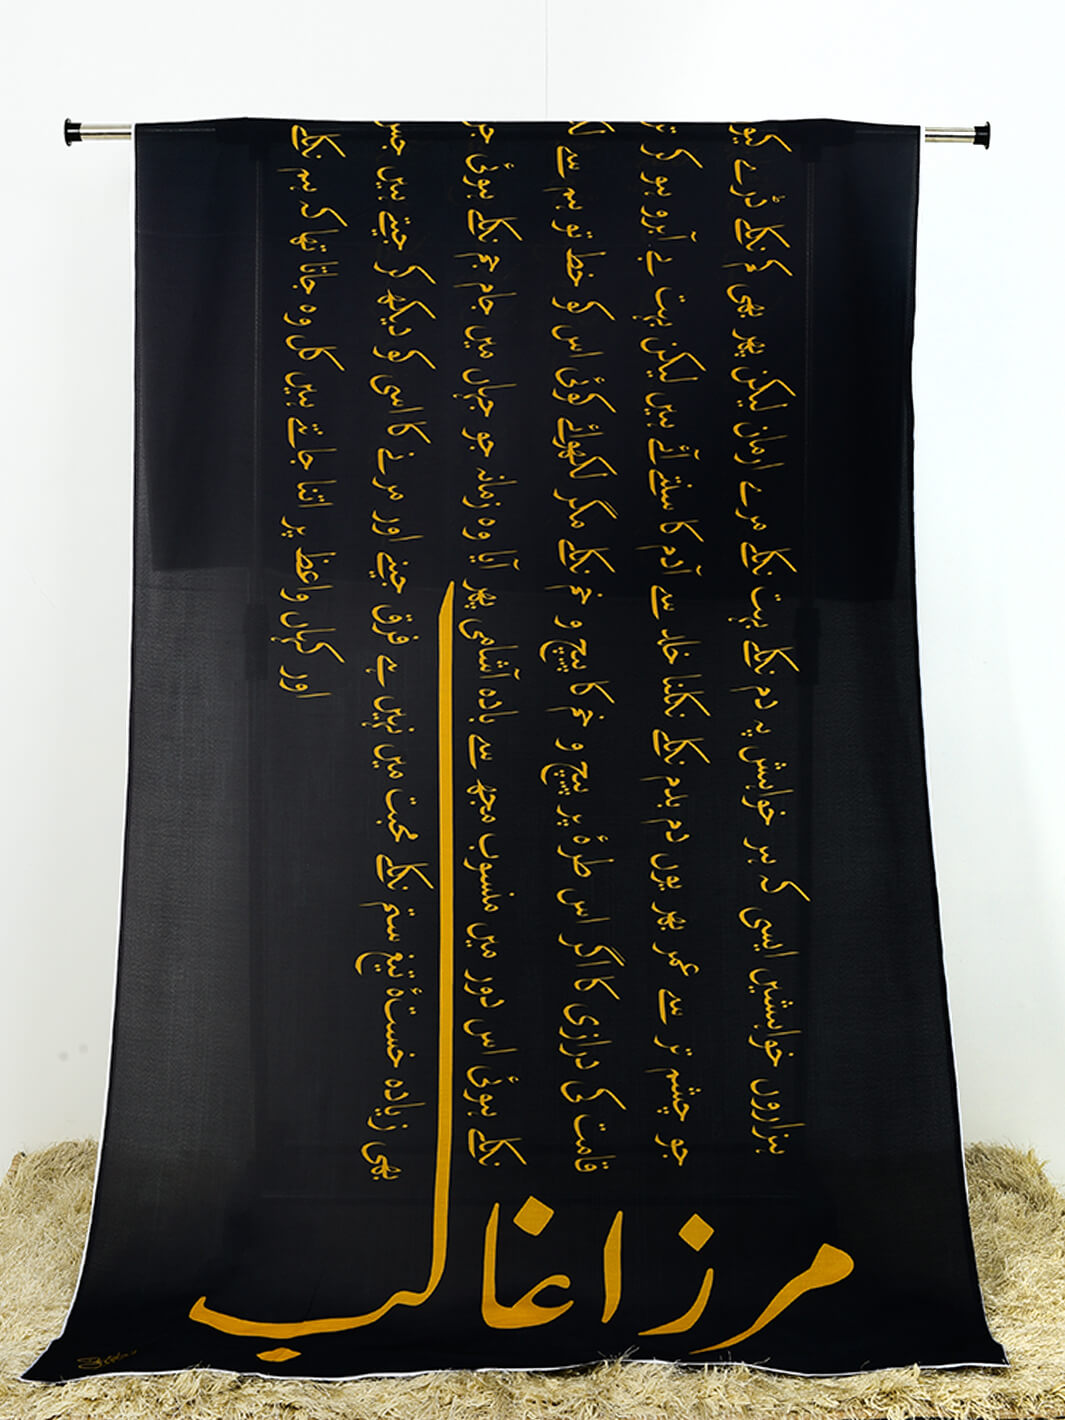 ہزاروں خواہشیں ایسی کہ ہر خواہش پہ دم نکلے بہت نکلے مرے ارمان لیکن پھر بھی کم نکلے ڈرے
جو چشم تر سے عمر بھر یوں دم بدم نکلے نکلنا خلد سے آدم کا سنتے آئے ہیں لیکن بہت بے آبرو ہو کر
قامت کی درازی کا اگر اس طرۂ پر پیچ و خم کا پیچ و خم نکلے مگر لکھوائے کوئی اس کو خط تو ہم سے
نکلے ہوئی اس دور میں منسوب مجھ سے بادہ آشامی پھر آیا وہ زمانہ جو جہاں میں جام جم نکلے ہوئی
بھی زیادہ خستۂ تیغ ستم نکلے محبت میں نہیں ہے فرق جینے اور مرنے کا اسی کو دیکھ کر جیتے ہیں جس
اور کہاں واعظ پر اتنا جانتے ہیں کل وہ جاتا تھا کہ ہم نکلے
مرزا غالب